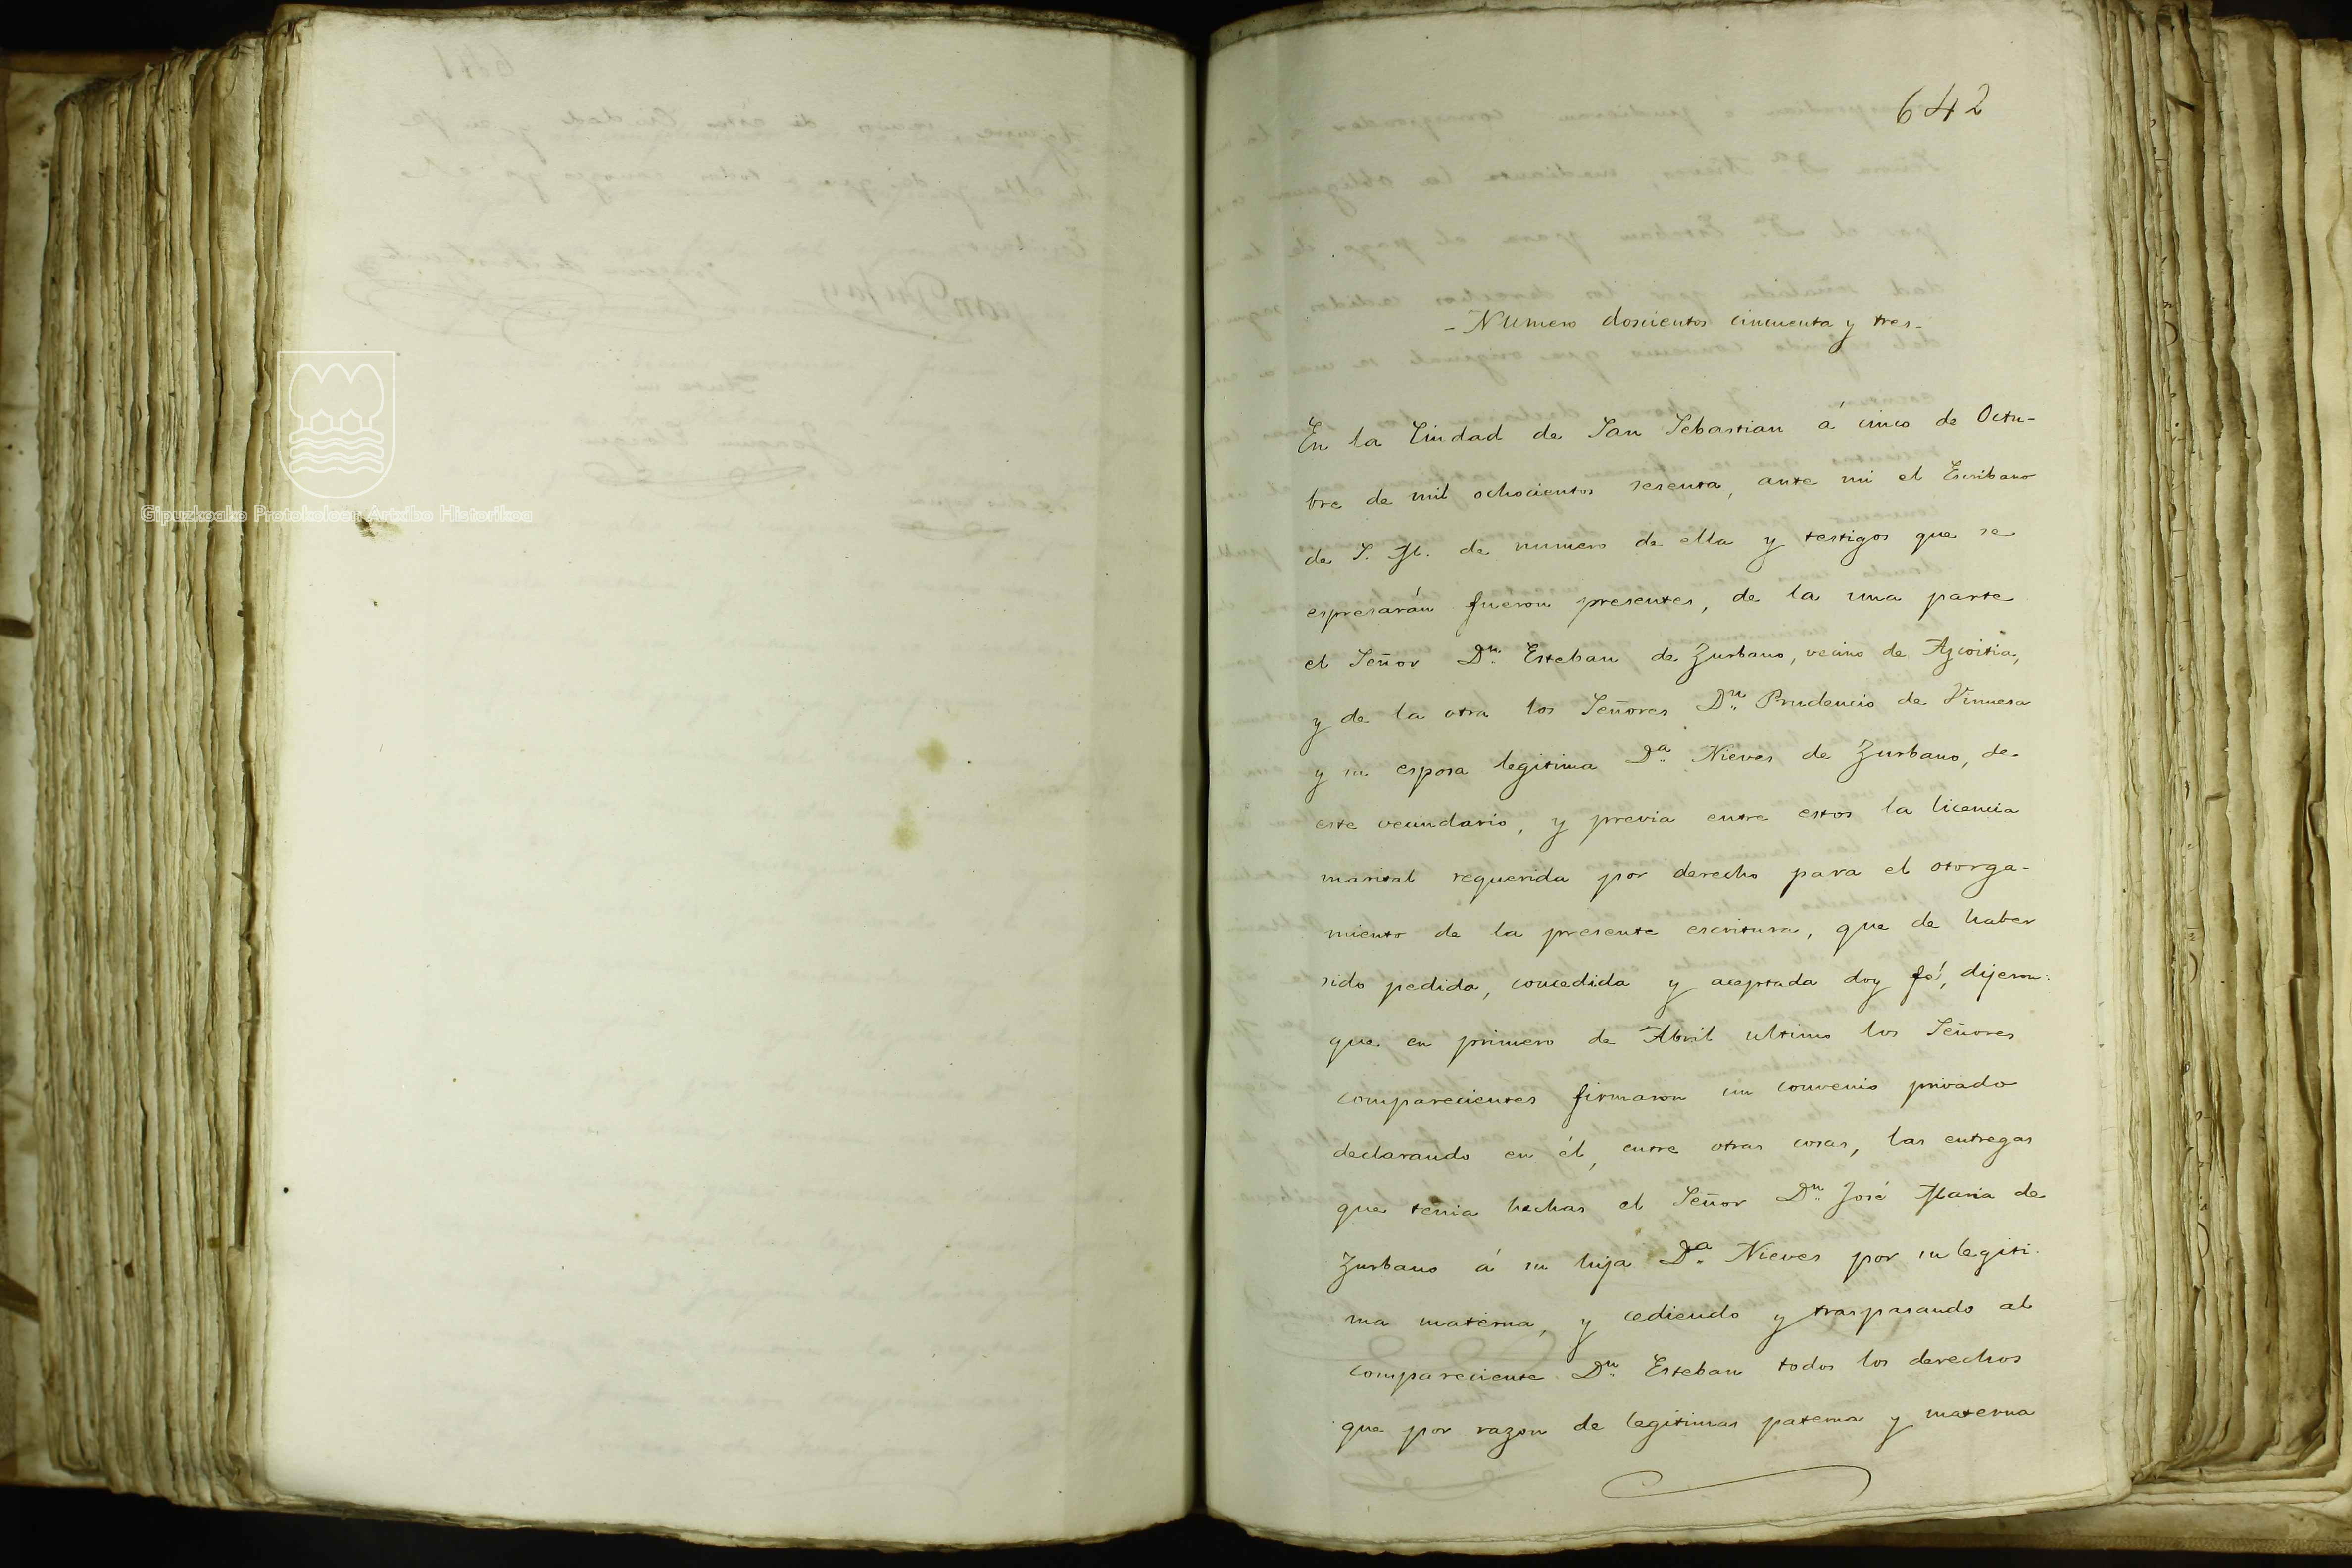 Gipuzkoako Protokoloen Artxibo Historikoa
642
- Numero doscientos cincuenta y tres-
En la Ciudad de San Sebastian á cinco de Octu-
bre de mil ochocientos sesenta, ante mi el Escribano
de S. M. de numero de ella y testigos que se
espresarán fueron presentes, de la una parte
el Señor Dn. Esteban de Zurbano, vecino de Azcoitia,
y de la otra los Señores Dn. Prudencio de Vinuesa
y su esposa legitima Da. Nieves de Zurbano, de
este vecindario, y previa entre estos la licencia
marital requerida por derecho para el otorga-
miento de la presente escritura, que de haber
sido pedida, concedida y aceptada doy fé, dijeron:
que en primero de Abril ultimo los Señores
comparecientes firmaron un convenio privado
declarando en él, entre otras cosas, las entregas
que tenia hechas el Señor Dn. José Maria de
Zurbano á su hija Da. Nieves por su legiti-
ma materna, y cediendo y traspasando al
compareciente Dn. Esteban todos los derechos
que por razon de legitimas paterna y materna